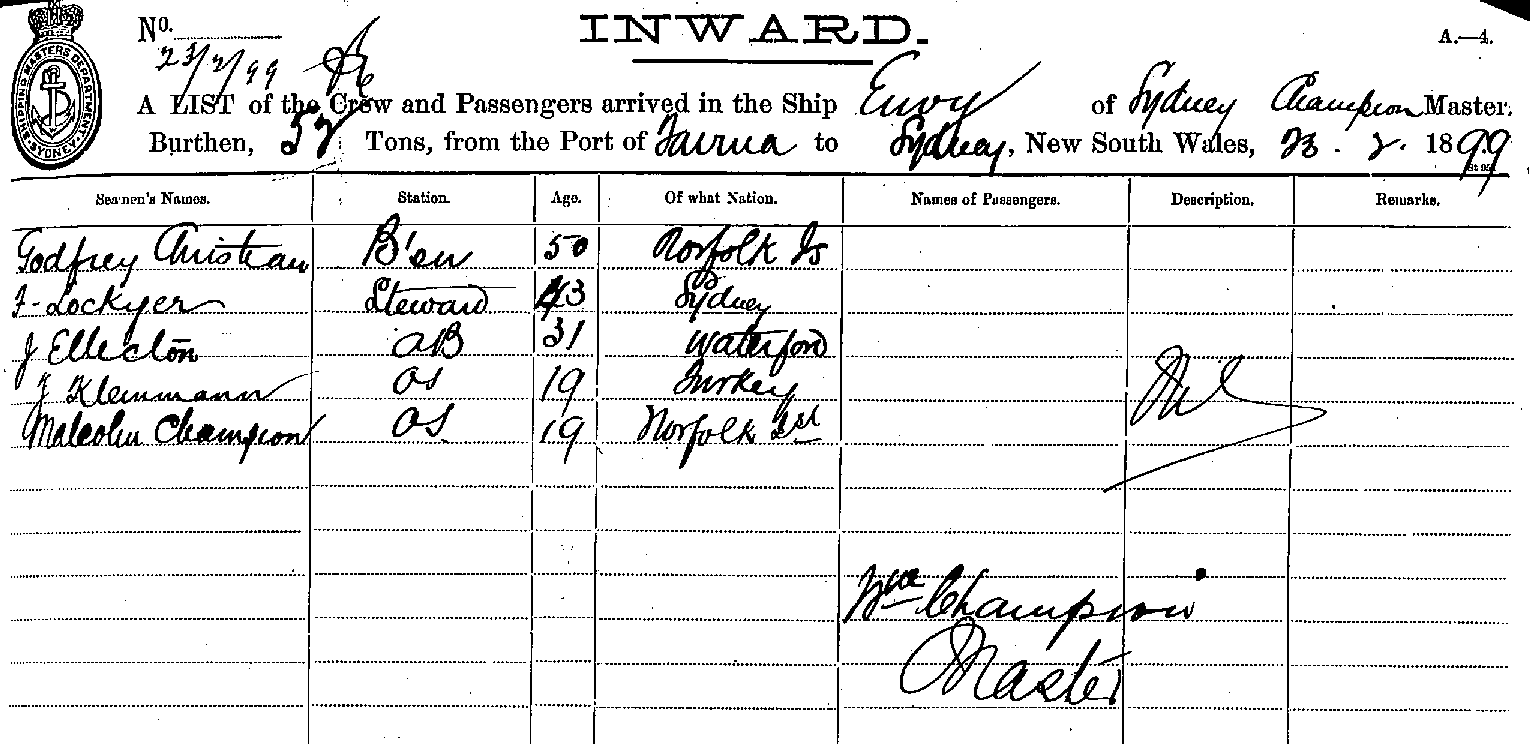 SHIPPING MASTERS DEPARTMENT SYDNEY
No.
INWARD.
A.—4.
23/2/99
A LIST of the Crew and Passengers arrived in the Ship Envoy of Sydney Champion Master.
Burthen, 52 Tons, from the Port of Tairua to Sydney, New South Wales, 23. 2. 1899
Seamen's Names. Station. Age. Of what Nation. Names of Passengers. Description. Remarks.
Godfrey Christian B'en 50 Norfolk Is
F. Lockyer Steward 43 Sydney
J Ellecton AB 31 Waterford
J Klemmann OS 19 Turkey
Nil
Malcolm Champion OS 19 Norfolk Isl
Wm Champion
Master